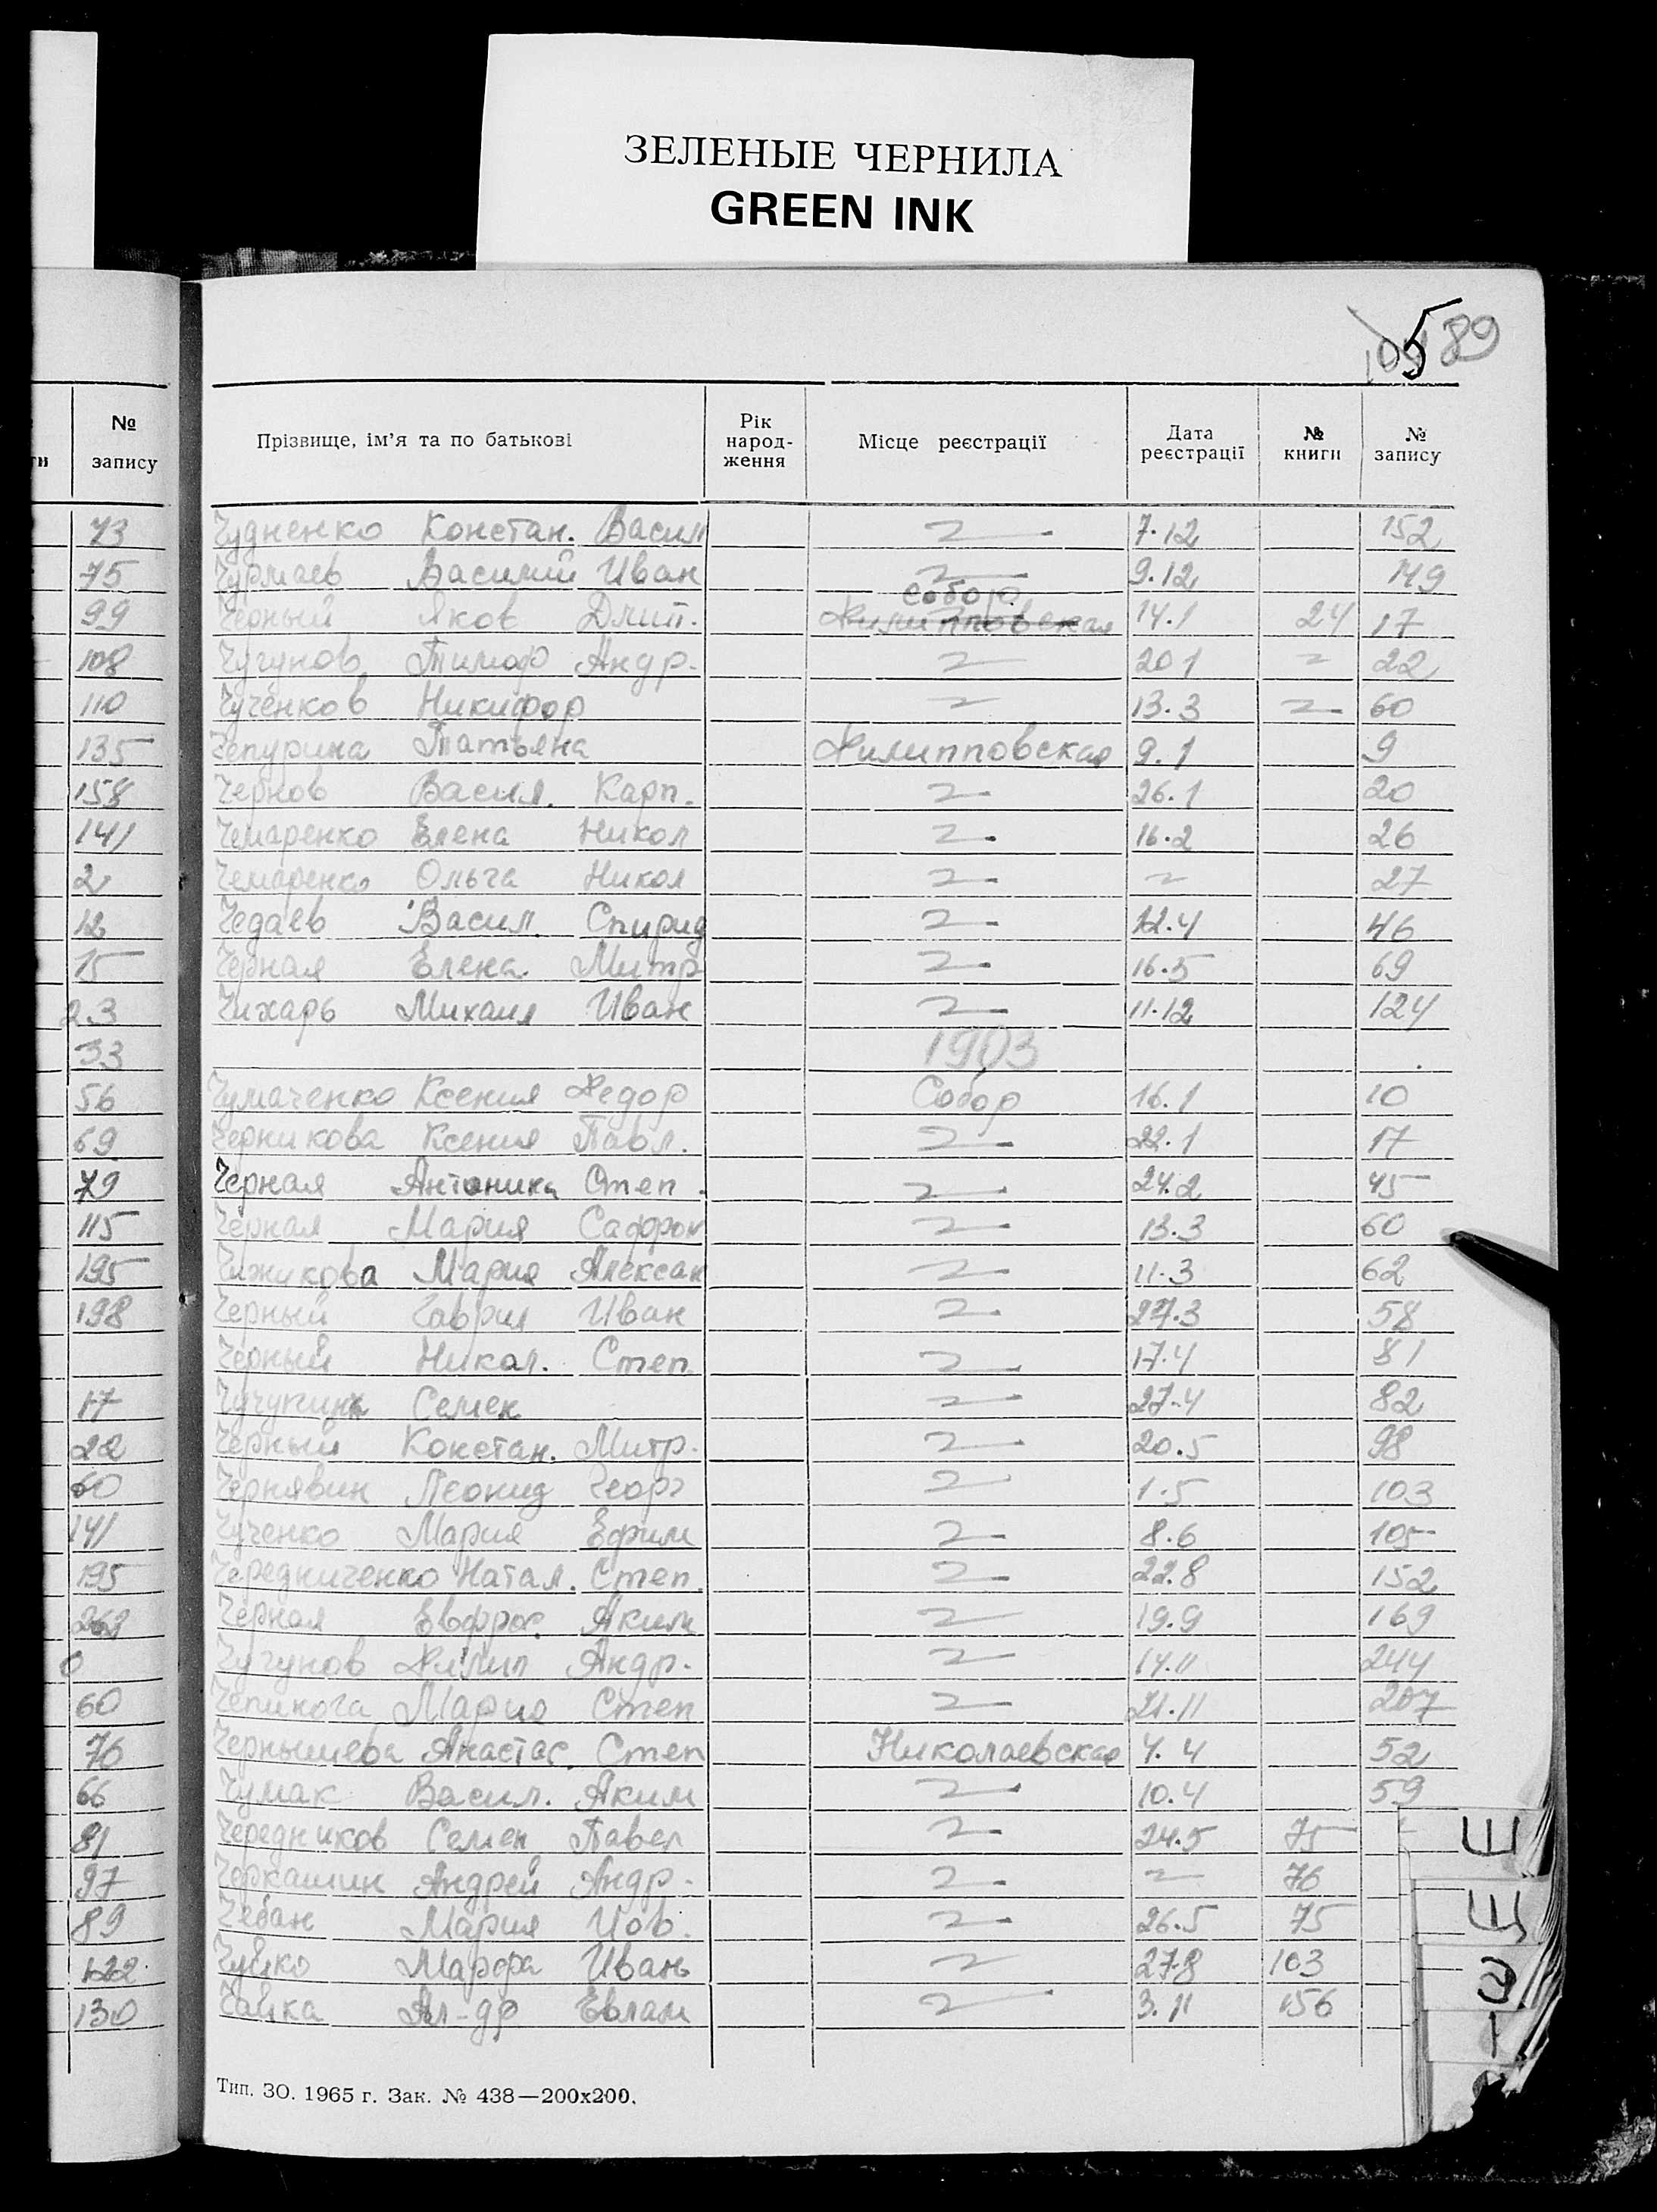 ЗЕЛЕНЫЕ ЧЕРНИЛА
GREEN INK
589
№ запису
73
75
99
108
110
135
158
141
2
12
15
23
33
56
69
79
115
195
198
17
22
60
141
195
262
0
60
76
66
81
97
89
122
130
Прізвище, ім’я та по батькові Рік народження Місце реєстрації Дата реєстрації № книги № запису
Чудненко Констан. Васил 2 7.12 152
Чурмаев Василий Иван 2 9.12 149
Собор
Черный Яков Дмит. Филипповская 14.1 24 17
Чугунов Тимоф Андр. 2 20 1 2 22
Чученков Никифор 2 13.3 2 60
Чепурина Татьяна Филипповская 9.1 9
Чернов Васил. Карп. 2 26.1 20
Чемаренко Елена Никол 2 16.2 26
Чемаренко Ольга Никол 2 2 27
Чедаев Васил. Спирид 2 12.4 46
Черная Елена Митр 2 16.5 69
Чихарь Михаил Иван 2 11.12 124
1903
Чумаченко Ксения Федор Собор 16.1 10
Черникова Ксения Павл. 2 22.1 17
Черная Антонина Степ. 2 24.2 45
Черная Мария Саффрон 2 13.3 60
Чижикова Мария Алексан 2 11.3 62
Черный Гаврил Иван 2 27.3 58
Черный Никол. Степ. 2 17.4 81
Семен 2 27.4 82
Черный Констан. Митр. 2 20.5 98
Чернявин Леонид Георг 2 1.5 103
Чученко Мария Ефим 2 8.6 105
Чередниченко Натал. Степ. 2 22.8 152
Черная Евфрос. Аким 2 19.9 169
Чугунов Филип Андр. 2 14.11 244
Чепинога Мария Степ 2 21.11 207
Чернышева Анастас. Степ Николаевская 4.4 52
Чумак Васил. Аким 2 10.4 59
Чередников Семен Павел 2 24.5 75
Черкашин Андрей Андр. 2 2 76
Чебан Мария Иов. 2 26.5 75
Чуйко Марфа Иван 2 27.8 103
Чайка Ал-др Евлам 2 3.11 156
Ш
Щ
Э
Тип. ЗО. 1965 г. Зак. № 438—200х200.